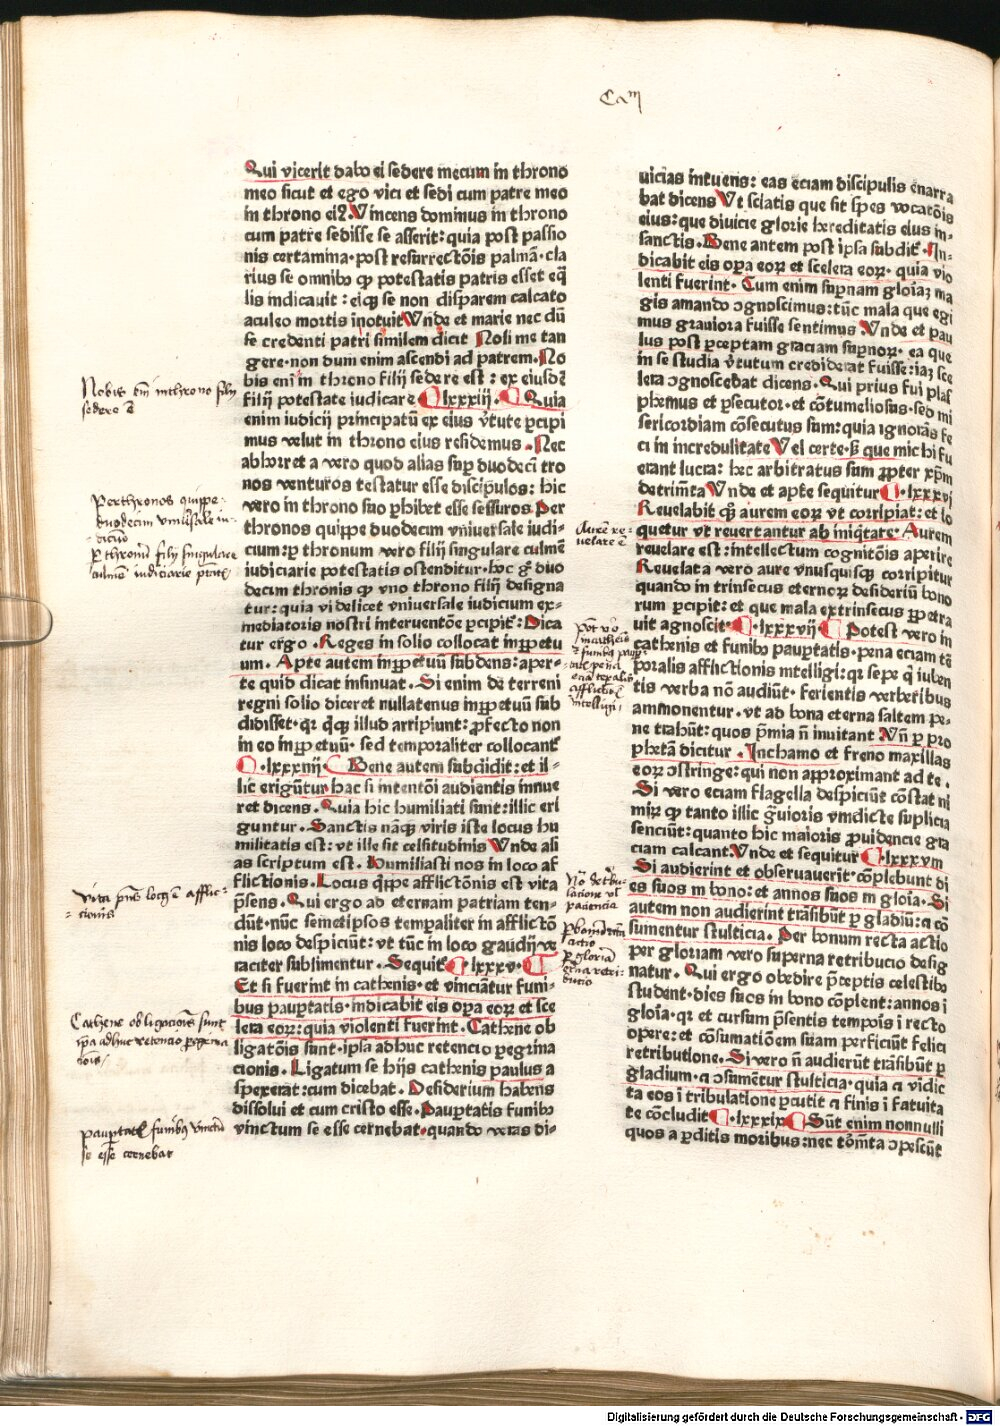 Cam
Qui vicerit dabo ei sedere mecum in throno
meo sicut et ego vici et sedi cum patre meo
in throno eiꝰ Vincens dominus in throno
cum patre sedisse se asserit: quia post passio
nis certamina·post resurrectōis palmā·cla
rius se omnibꝰ ꝙ potestatis patris esset eq̄
lis indicauit: eiqꝫ se non disparem calcato
aculeo mortis īnotuit Vnde et marie nec dū
se credenti patri similem dicit Noli me tan
gere·non dum enim ascendi ad patrem·No
bis eni in throno filij sedere est: ex eiusdē
filij potestate iudicare ¶ lxxxiij·¶ Quia
enim iudicij principatū ex eius v̄tute ꝑcipi
mus velut in throno eius residemus·Nec
abhorret a vero quod alias suꝑ duodecī tro
nos venturos testatur esse discipulos: hic
vero in throno suo ꝓhibet esse sessuros Per
thronos quippe duodecim vniuersale iudi⸗
cium: ꝑ thronum vero filij singulare culmē
iudiciarie potestatis ostenditur·hoc gͦ duo
decim thronis ꝙ vno throno filij designa
tur: quia videlicet vniuersale iudicium ex⸗
mediatoris nostri interuentōe ꝑcipit͛: Dica
tur ergo·Reges in solio collocat inꝑpetu
um·Apte autem inꝑpetuū subdens: aper⸗
te quid dicat insinuat·Si enim de terreni
regni solio diceret nullatenus inꝑpetuū sub
didisset·qr qͥcqꝫ illud arripiunt: ꝓfecto non
in eo inꝑpetuū·sed temporaliter collocant͛
¶·lxxxiiij·¶ Bene autem subdidit: et il⸗
lic erigūtur hac si intentōi audientis innue
ret dicens·Quia hic humiliati sunt: illic eri
guntur·Sanctis nāqꝫ viris iste locus hu
militatis est: vt ille sit celsitudinis Vnde ali
as scriptum est·Humiliasti nos in loco af
flictionis·Locus qͥppe afflictōnis est vita
p̄sens·Qui ergo ad eternam patriam ten⸗
dūt·nūc semetipsos tempaliter in afflictō
nis loco despiciūt: vt tūc in loco gaudij ve
raciter sublimentur·Sequit͛ ¶·lxxxv·¶
Et si fuerint in cathenis·et vinciātur funi⸗
bus pauꝑtatis·indicabit eis oꝑa eoꝝ et sce
lera eoꝝ: quia violenti fuerint·Cathene ob
ligatōis sunt·ipsa adhuc retencio ꝑegrina
cionis·Ligatum se hijs cathenis paulus a
spexerat: cum dicebat·Desiderium habens
dissolui et cum cristo esse·Pauꝑtatis funibꝰ
vinctum se esse cernebat·quando veras di⸗
uicias intuens: eas eciam discipulis enarra
bat dicens Vt sciatis que sit spes vocatōis
eius: que diuicie glorie hereditatis eius in⸗
sanctis·Bene autem post ipsa subdit͛·In⸗
dicabit eis oꝑa eoꝝ et scelera eoꝝ·quia vio
lenti fuerint·Cum enim suꝑnam gloiaꝫ ma
gis amando ꝯgnoscimus: tūc mala que egi
mus grauiora fuisse sentimus Vnde et pau
lus post ꝑceptam graciam suꝑnoꝝ·ea que
in se studia v̄tutum crediderat fuisse: iaꝫ sce
lera ꝯgnoscebat dicens·Qui prius fui plas
phemus et ꝑsecutor·et cōtumeliosus·sed mi
sericordiam cōsecutus sum: quia ignorās fe
ci in incredulitate Vel certe·ꝗ que michi fu
erant lucra: hec arbitratus sum ꝓpter xp̄m
detrimēta Vnde et apte sequitur ¶·lxxxvj
Reuelabit qꝫ aurem eoꝝ vt corripiat: et lo
quetur vt reuertantur ab iniq̄tate·Aurem
reuelare est: intellectum cognitōis aperire
Reuelata vero aure vnusquisqꝫ corripitur
quando in trinsecus eternoꝝ desideriū bono
rum ꝑcipit: et que mala extrinsecus ꝑpetra
uit agnoscit ¶·lxxxvij·¶ Potest vero in
cathenis et funibꝰ pauꝑtatis·pena eciam tē
poralis afflictionis intelligi: qr sepe q̄ iuben
tis verba nō audiūt·ferientis verberibus
ammonentur·vt ad bona eterna saltem pe⸗
ne trahūt: quos p̄mia n̄ inuitant Vn̄ ꝑ pro
phetā dicitur·Inchamo et freno maxillas
eoꝝ ꝯstringe: qui non approximant ad te·
Si vero eciam flagella despiciūt cōstat ni
miꝝ ꝙ tanto illic gͣuioris vindicte suplicia
senciūt: quanto hic maioris ꝓuidencie gra
ciam calcant. Vnde et sequitur ¶ lxxxvm
Si audierint et obseruauerit cōplebunt di
es suos in bono: et annos suos in gloia·Si
autem non audierint trāsibūt ꝑ gladiū: ⁊ cō
sumentur stulticia·Per bonum recta actio
per gloriam vero superna retribucio desig
natur·Qui ergo obedire p̄ceptis celestibꝰ
student·dies suos in bono cōplent: annos i
gloia·qr et cursum p̄sentis tempois i recto
opere: et cōsumatiōem suam perficiūt felici
retributione·Si vero n̄ audierūt trāsibūt ꝑ
gladium·⁊ ꝯsumētur stulticia·quia ⁊ vidic
ta eos i tribulatione ꝑcutit ⁊ finis i fatuita
te cōcludit ¶·lxxxix ¶ Sūt enim nonnulli
quos a ꝑditis moribus: nec tōmta ꝯpescūt
sedere ē
duodecim
Aurē re⸗
uelare ē
Vita p̄ns loc9 ē afflic⸗
tionis
ꝑ gloriā
Cathene obligacionis sunt
ipā adhuc retencio
pauꝑtatꝭ funibus vinctū
se esse cernebat
Digitalisierung gefördert durch die Deutsche Forschungsgemeinschaft - DFG